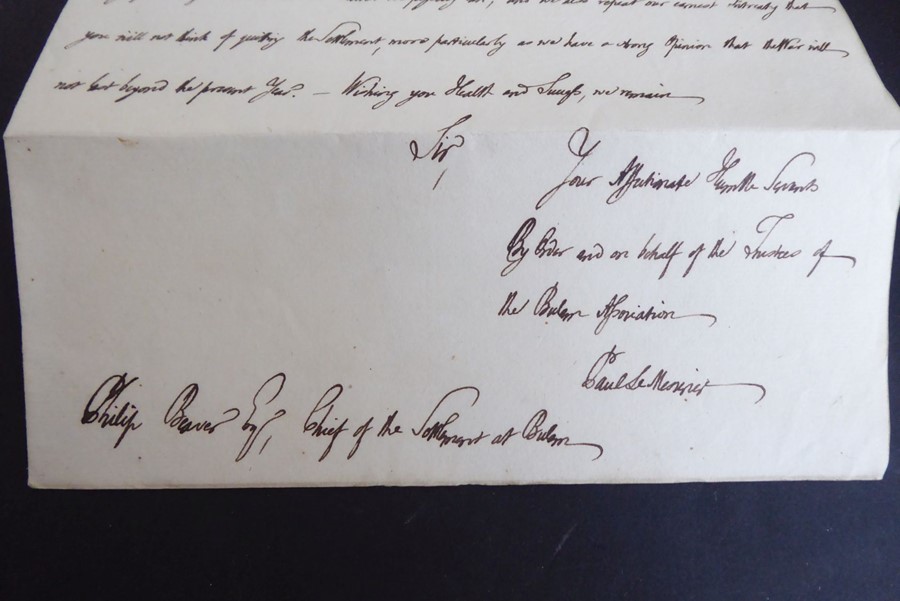 and we also repeat our earnest Intreaty that
you will not think of quitting the Settlement, more particularly as we have a strong Opinion that the War will
not last beyond the present Year. — Wishing you Health and Success, we remain
Sir,
Your Affectionate Humble Servants
By Order and on behalf of the Trustees of
the Bulam Association
Paul Le Mesurier
Philip Beaver Esqr, Chief of the Settlement at Bulam